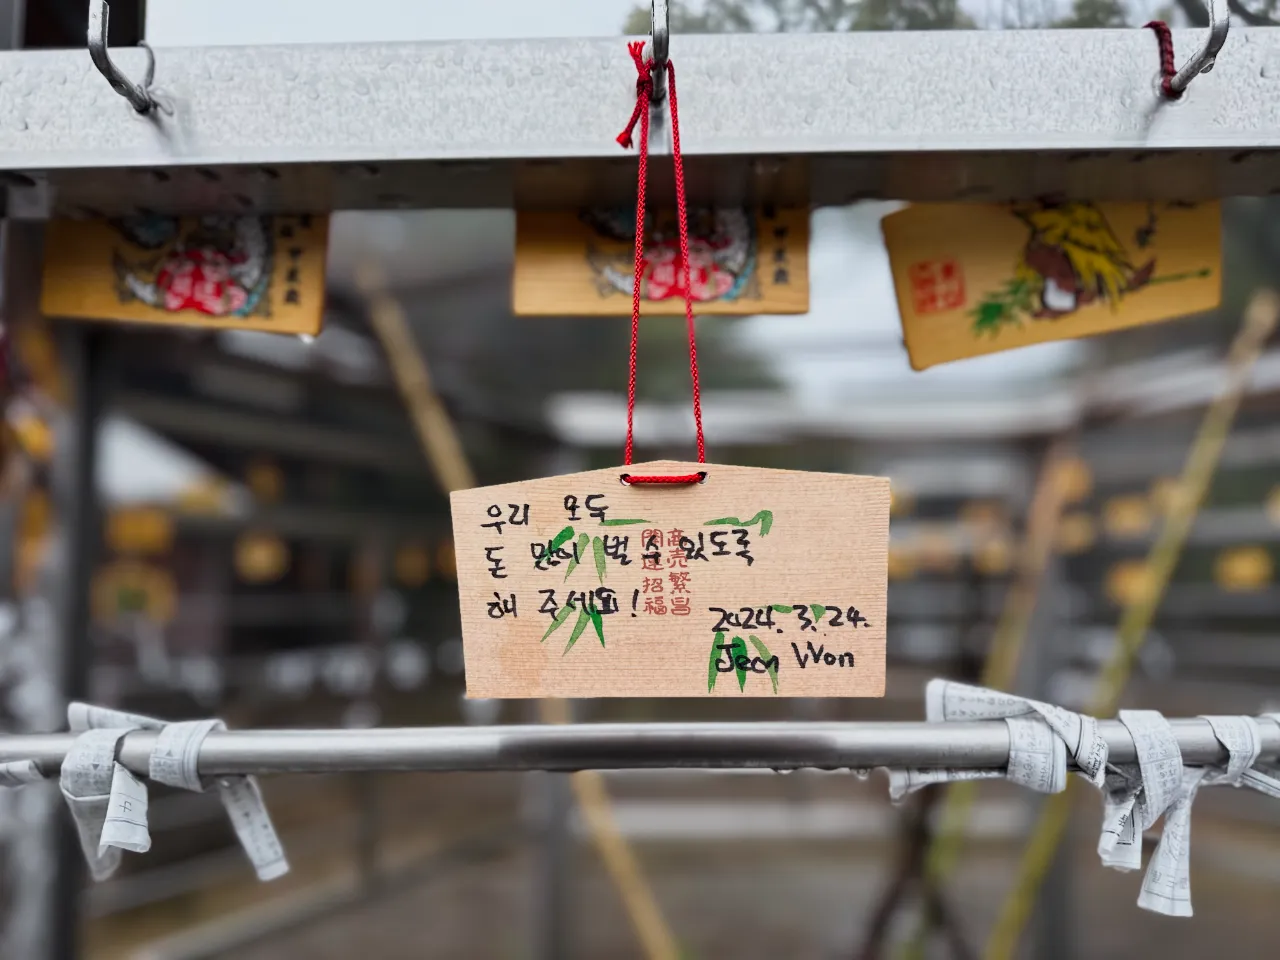 우리 모두
돈 많이 벌 수 있도록
해 주세요!
商売繁昌
開運招福
2024. 3. 24.
Jeon Won